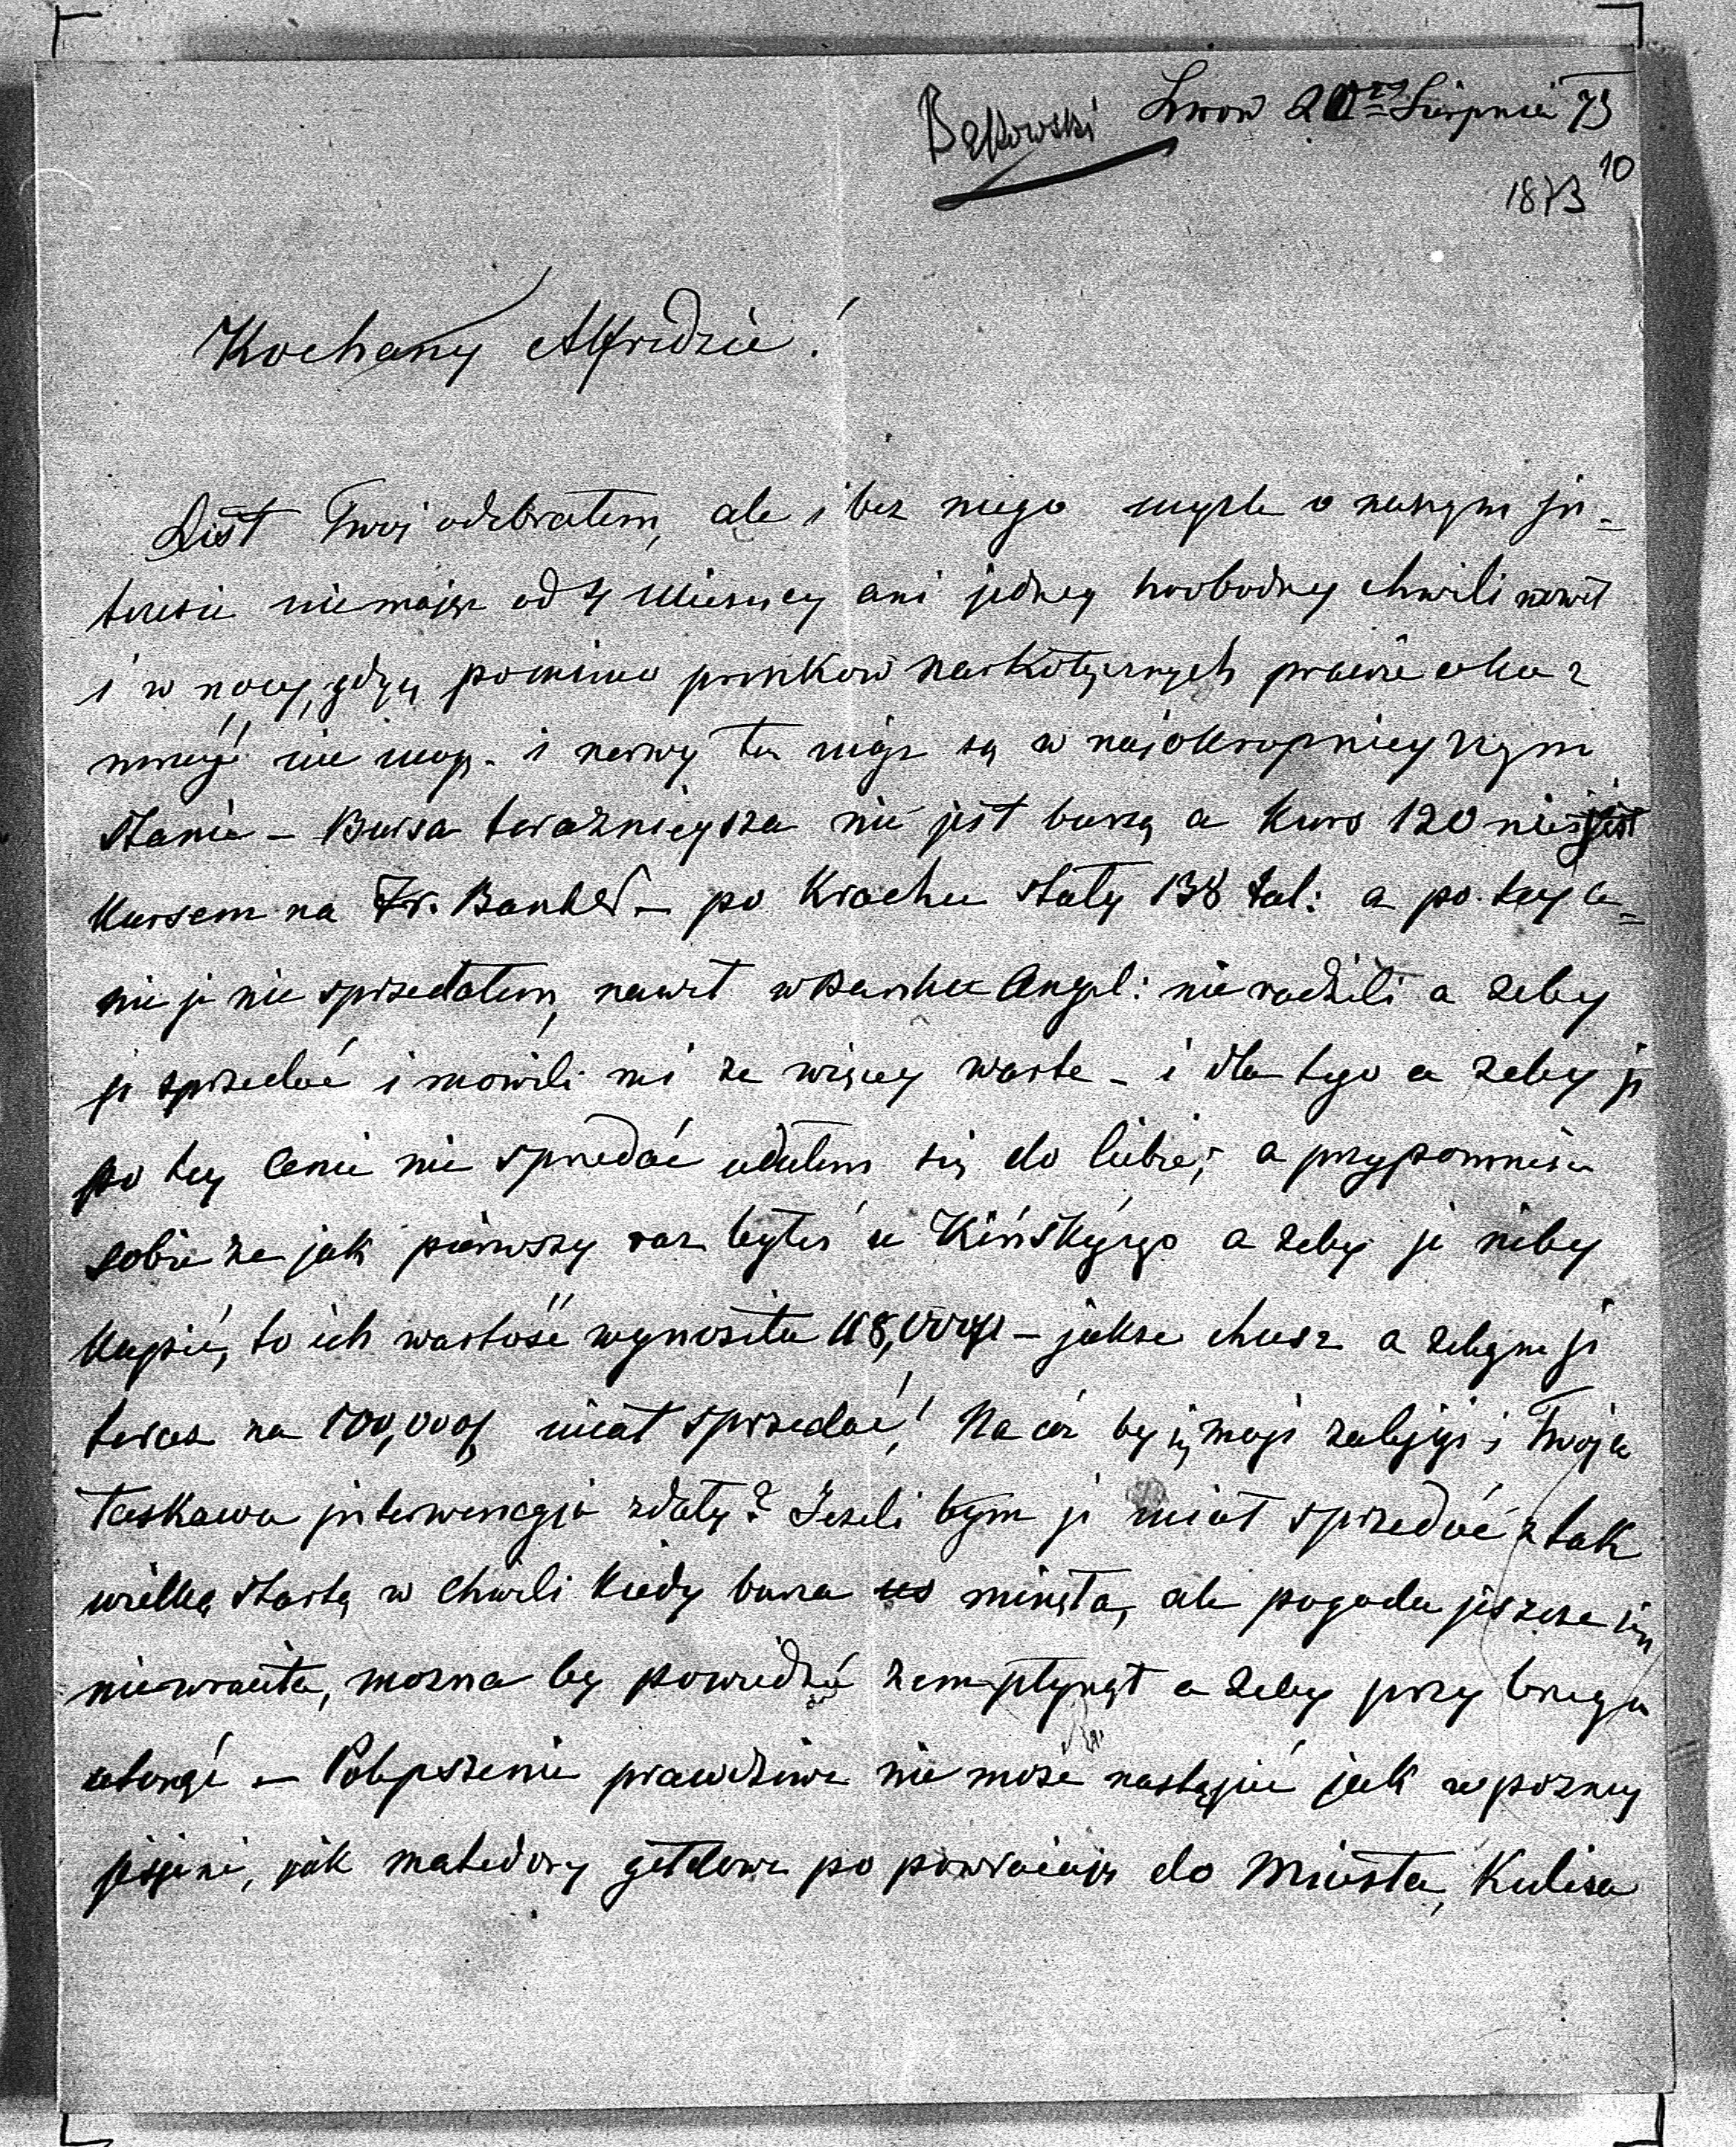 Bąkowski Lwow 20go Sierpnia 73
10
1873
Kochany Alfredzie!
List Twoj odebrałem, ale i bez niego myśle o naszym in-
teresie nie mając od 4 Miesiecy ani jedney swobodney chwili nawet
i w nocy, gdyż pomimo proszkow narkotycznych prawie oka z
mrużyć nie mogę - i nerwy też moje są w najokropnieyszym
stanie - Bursa teraznieysza nie jest bursą a kurs 120 nie jest
kursem na Fr. Bank - po Krachu stały 138 Zal: a po tey ce=
nie je nie sprzedałem, nawet w Banku Angl: nie radzili a zeby
je sprzedać i mowili mi ze więcey warte - i dla tego a zeby je
po tey cenie nie sprzedać udałem się do Ciebie; a przypomnisz
sobie ze jak pierwszy raz byłeś u Kińskýego a zeby je niby
kupić, to ich wartość wynosiła 118,000 - jakze chcesz a zebym je
teraz za 100,000 miał sprzedać! Na cóż by się moje zabiegi i Twoja
łaskawa interwencyja zdały? Jezeli bym je miał sprzedać z tak
wielką stratą w chwili kiedy burza minęła, ale pogoda jeszcze się
niewróciła, mozna by powiedzieć zem płynął a zeby przy brzegu
utonąć - Polepszenie prawdziwe nie może nastąpić jak w pozney
jesieni, jak matadory giełdowe po powracają do Miasta, Kulisa